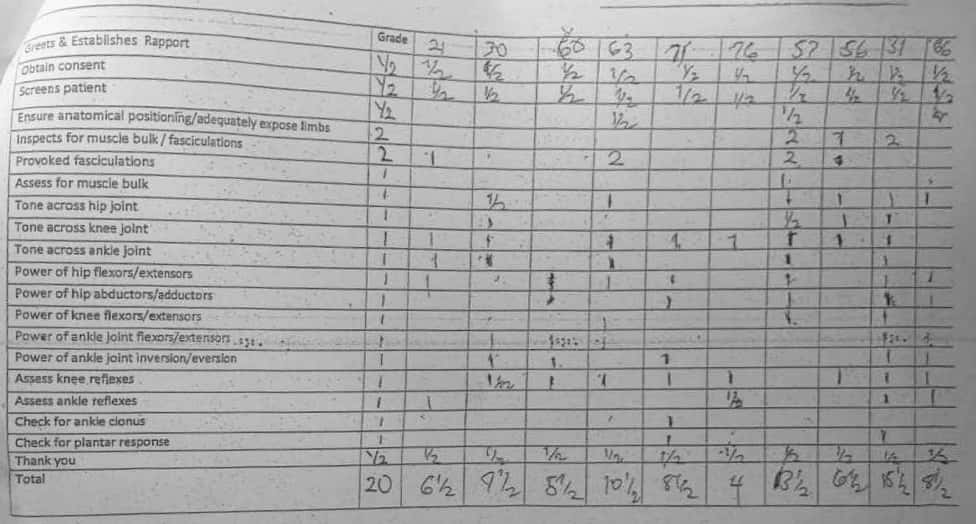 Greets & Establishes Rapport Grade 21 30 60 63 71 76 57 56 31 86
Obtain consent ½ ½ ½ ½ ½ ½ ½ ½ ½ ½ ½
Screens patient ½ ½ ½ ½ ½ ½ ½ ½ ½ ½ ½
Ensure anatomical positioning/adequately expose limbs ½ ½ ½
Inspects for muscle bulk / fasciculations 2 2 1 2
Provoked fasciculations 2 1 2 2
Assess for muscle bulk 1 1
Tone across hip joint 1 ½ 1 1 1 1 1
Tone across knee joint 1 ½ 1 1
Tone across ankle joint 1 1 1 1 1 1 1 1 1
Power of hip flexors/extensors 1 1 1 1 1
Power of hip abductors/adductors 1 1 1 1 1
Power of knee flexors/extensors 1
Power of ankle joint flexors/extensors 1
Power of ankle joint inversion/eversion 1 1 1 1 1 1
Assess knee reflexes 1 1 1 1 1 1 1 1
Assess ankle reflexes 1 1 ½ 1 1
Check for ankle clonus 1 1
Check for plantar response 1 1 1
Thank you ½ ½ ½ ½ ½ ½ ½ ½ ½ ½ ½
Total 20 6½ 9½ 5½ 10½ 8½ 4 13½ 6½ 15½ 8½